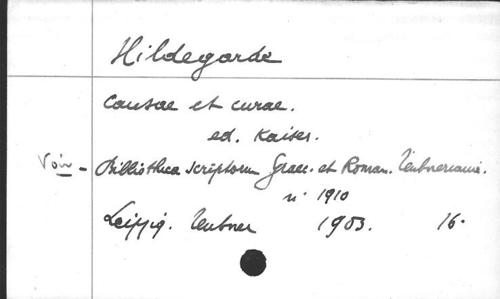 Hildegarde
Causae et curae.
ed. Kaiser.
Voir - Bibliotheca scriptorum Graec. et Roman. Teubneriana.
n° 1910
Leipzig. Teubner 1903. 16°